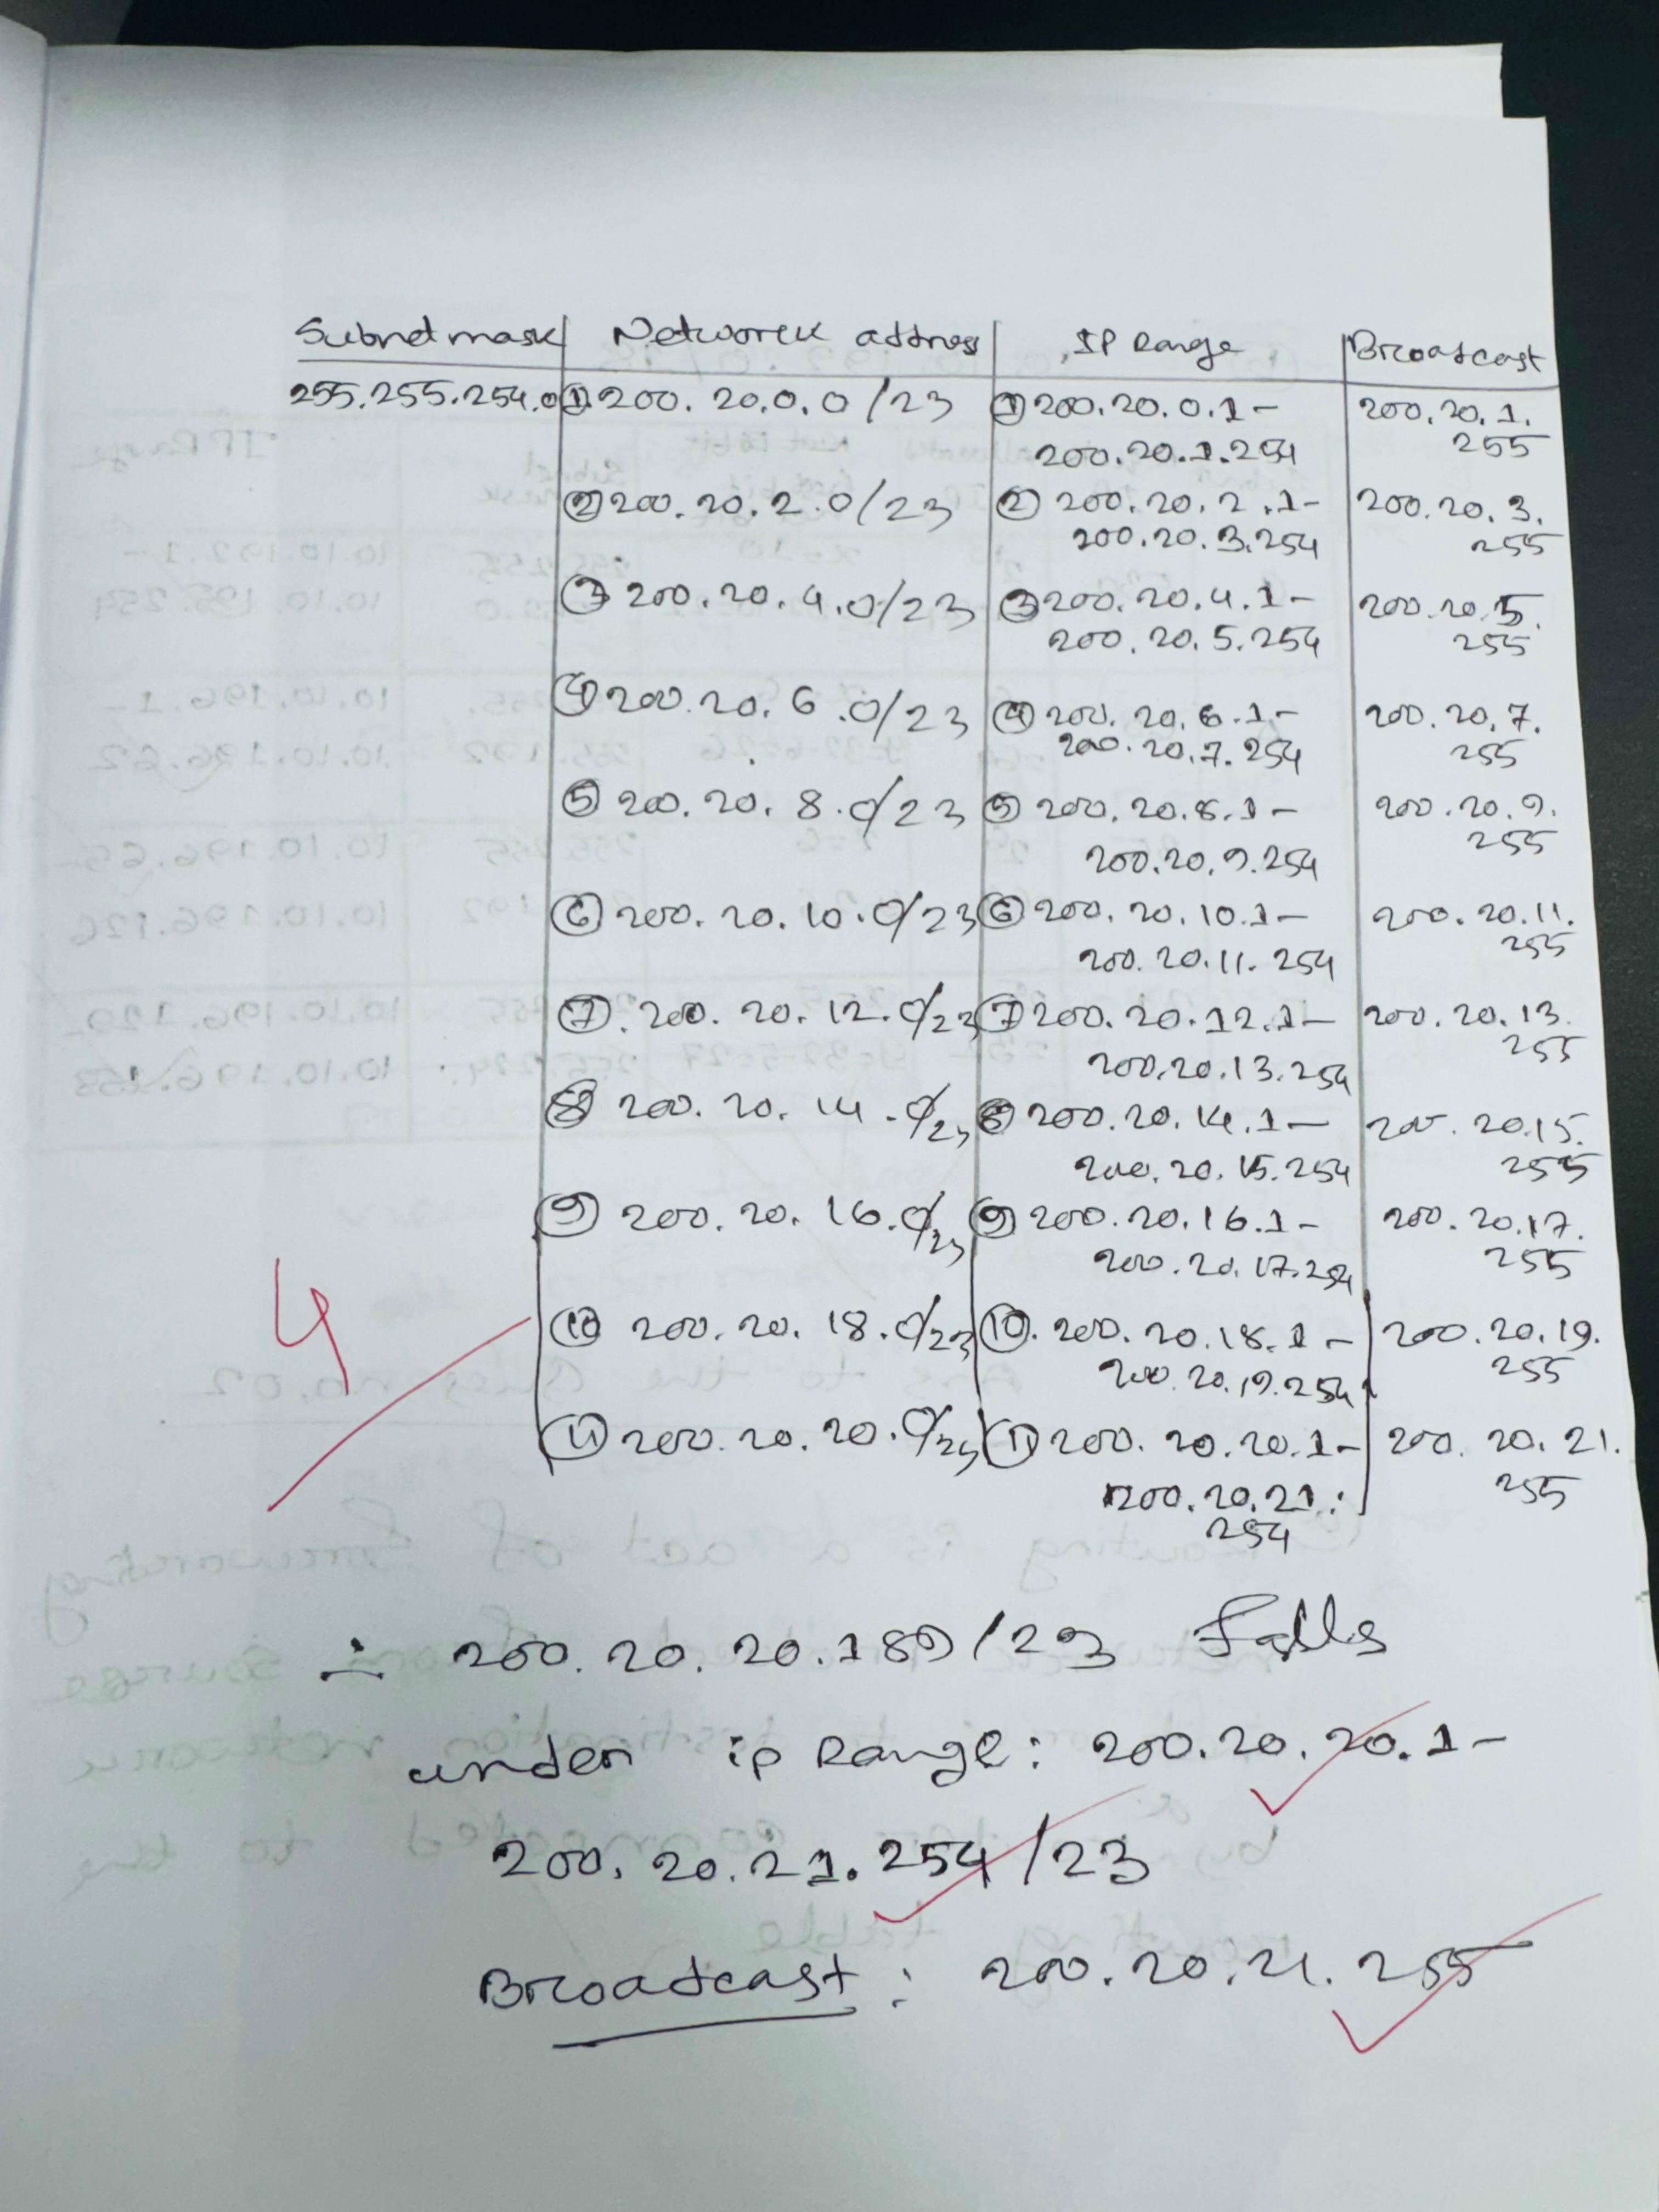 Subnet mask Network address IP Range Broadcast
255.255.254.0 ① 200.20.0.0/23 ① 200.20.0.1- 200.20.1.
200.20.1.254 255
② 200.20.2.0/23 ② 200.20.2.1- 200.20.3.
200.20.3.254 255
③ 200.20.4.0/23 ③ 200.20.4.1- 200.20.5.
200.20.5.254 255
④ 200.20.6.0/23 ④ 200.20.6.1- 200.20.7.
200.20.7.254 255
⑤ 200.20.8.0/23 ⑤ 200.20.8.1- 200.20.9.
200.20.9.254 255
⑥ 200.20.10.0/23 ⑥ 200.20.10.1- 200.20.11.
200.20.11.254 255
⑦. 200.20.12.0/23 ⑦ 200.20.12.1- 200.20.13.
200.20.13.254 255
⑧ 200.20.14.0/23 ⑧ 200.20.14.1- 200.20.15.
200.20.15.254 255
⑨ 200.20.16.0/23 ⑨ 200.20.16.1- 200.20.17.
200.20.17.254 255
⑩ 200.20.18.0/23 ⑩. 200.20.18.1- 200.20.19.
200.20.19.254 255
⑪ 200.20.20.0/23 ⑪ 200.20.20.1- 200.20.21.
200.20.21. 255
254
4
∴ 200.20.20.189/23 Falls
under ip Range: 200.20.20.1-
200.20.21.254/23
Broadcast: 200.20.21.255